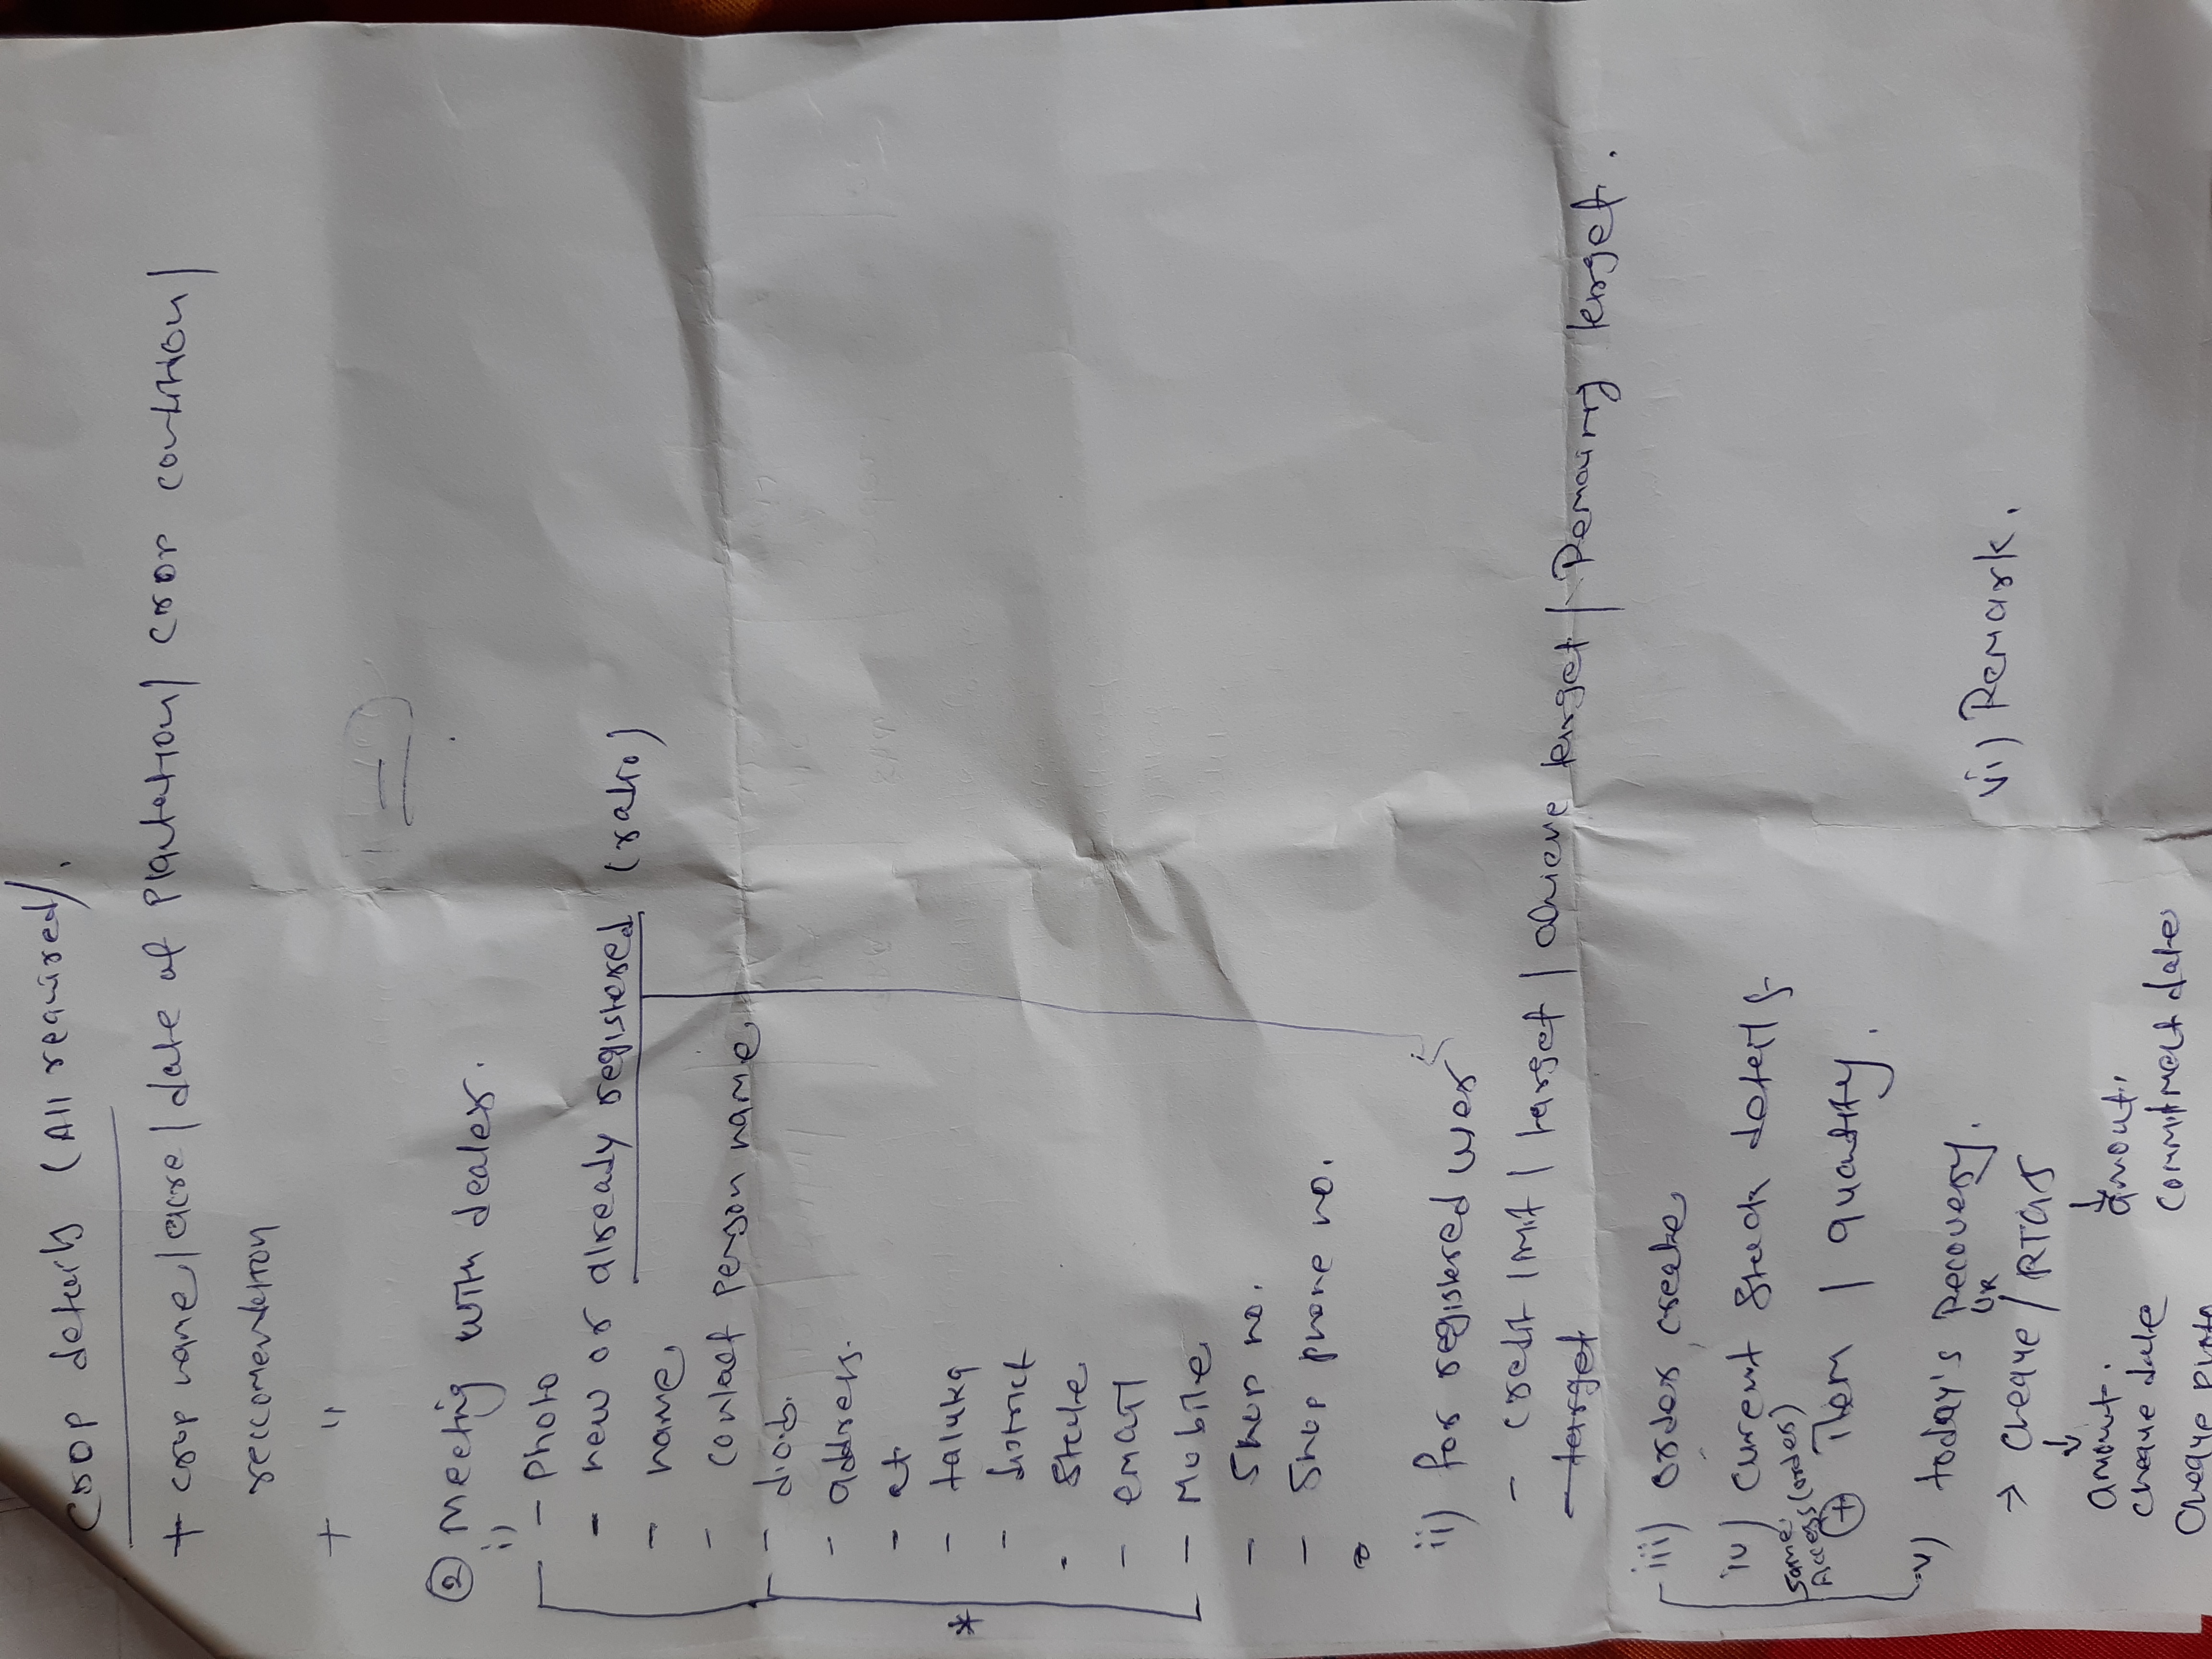 crop details (All required).
+ crop name / acre / date of Plantation / crop condition /
reccomendation
+ "
② Meeting with dealer.
i)
- Photo
- new or already registered (ratio)
- name
- contact person name
- d.o.b.
- address.
- at
- taluka
- district
- State
- email
- Mobile
- Shop no.
- Shop phone no.
ii) for registered user
- credit limit / target / achieve target / Remaining target.
- target
iii) order create
iv) current stock details
same Access (order)
+ item / quantity.
v) today's Recovery.
OR
→ cheque / RTGS
amount. amount.
cheque date commitment date
cheque photo
vi) Remark.